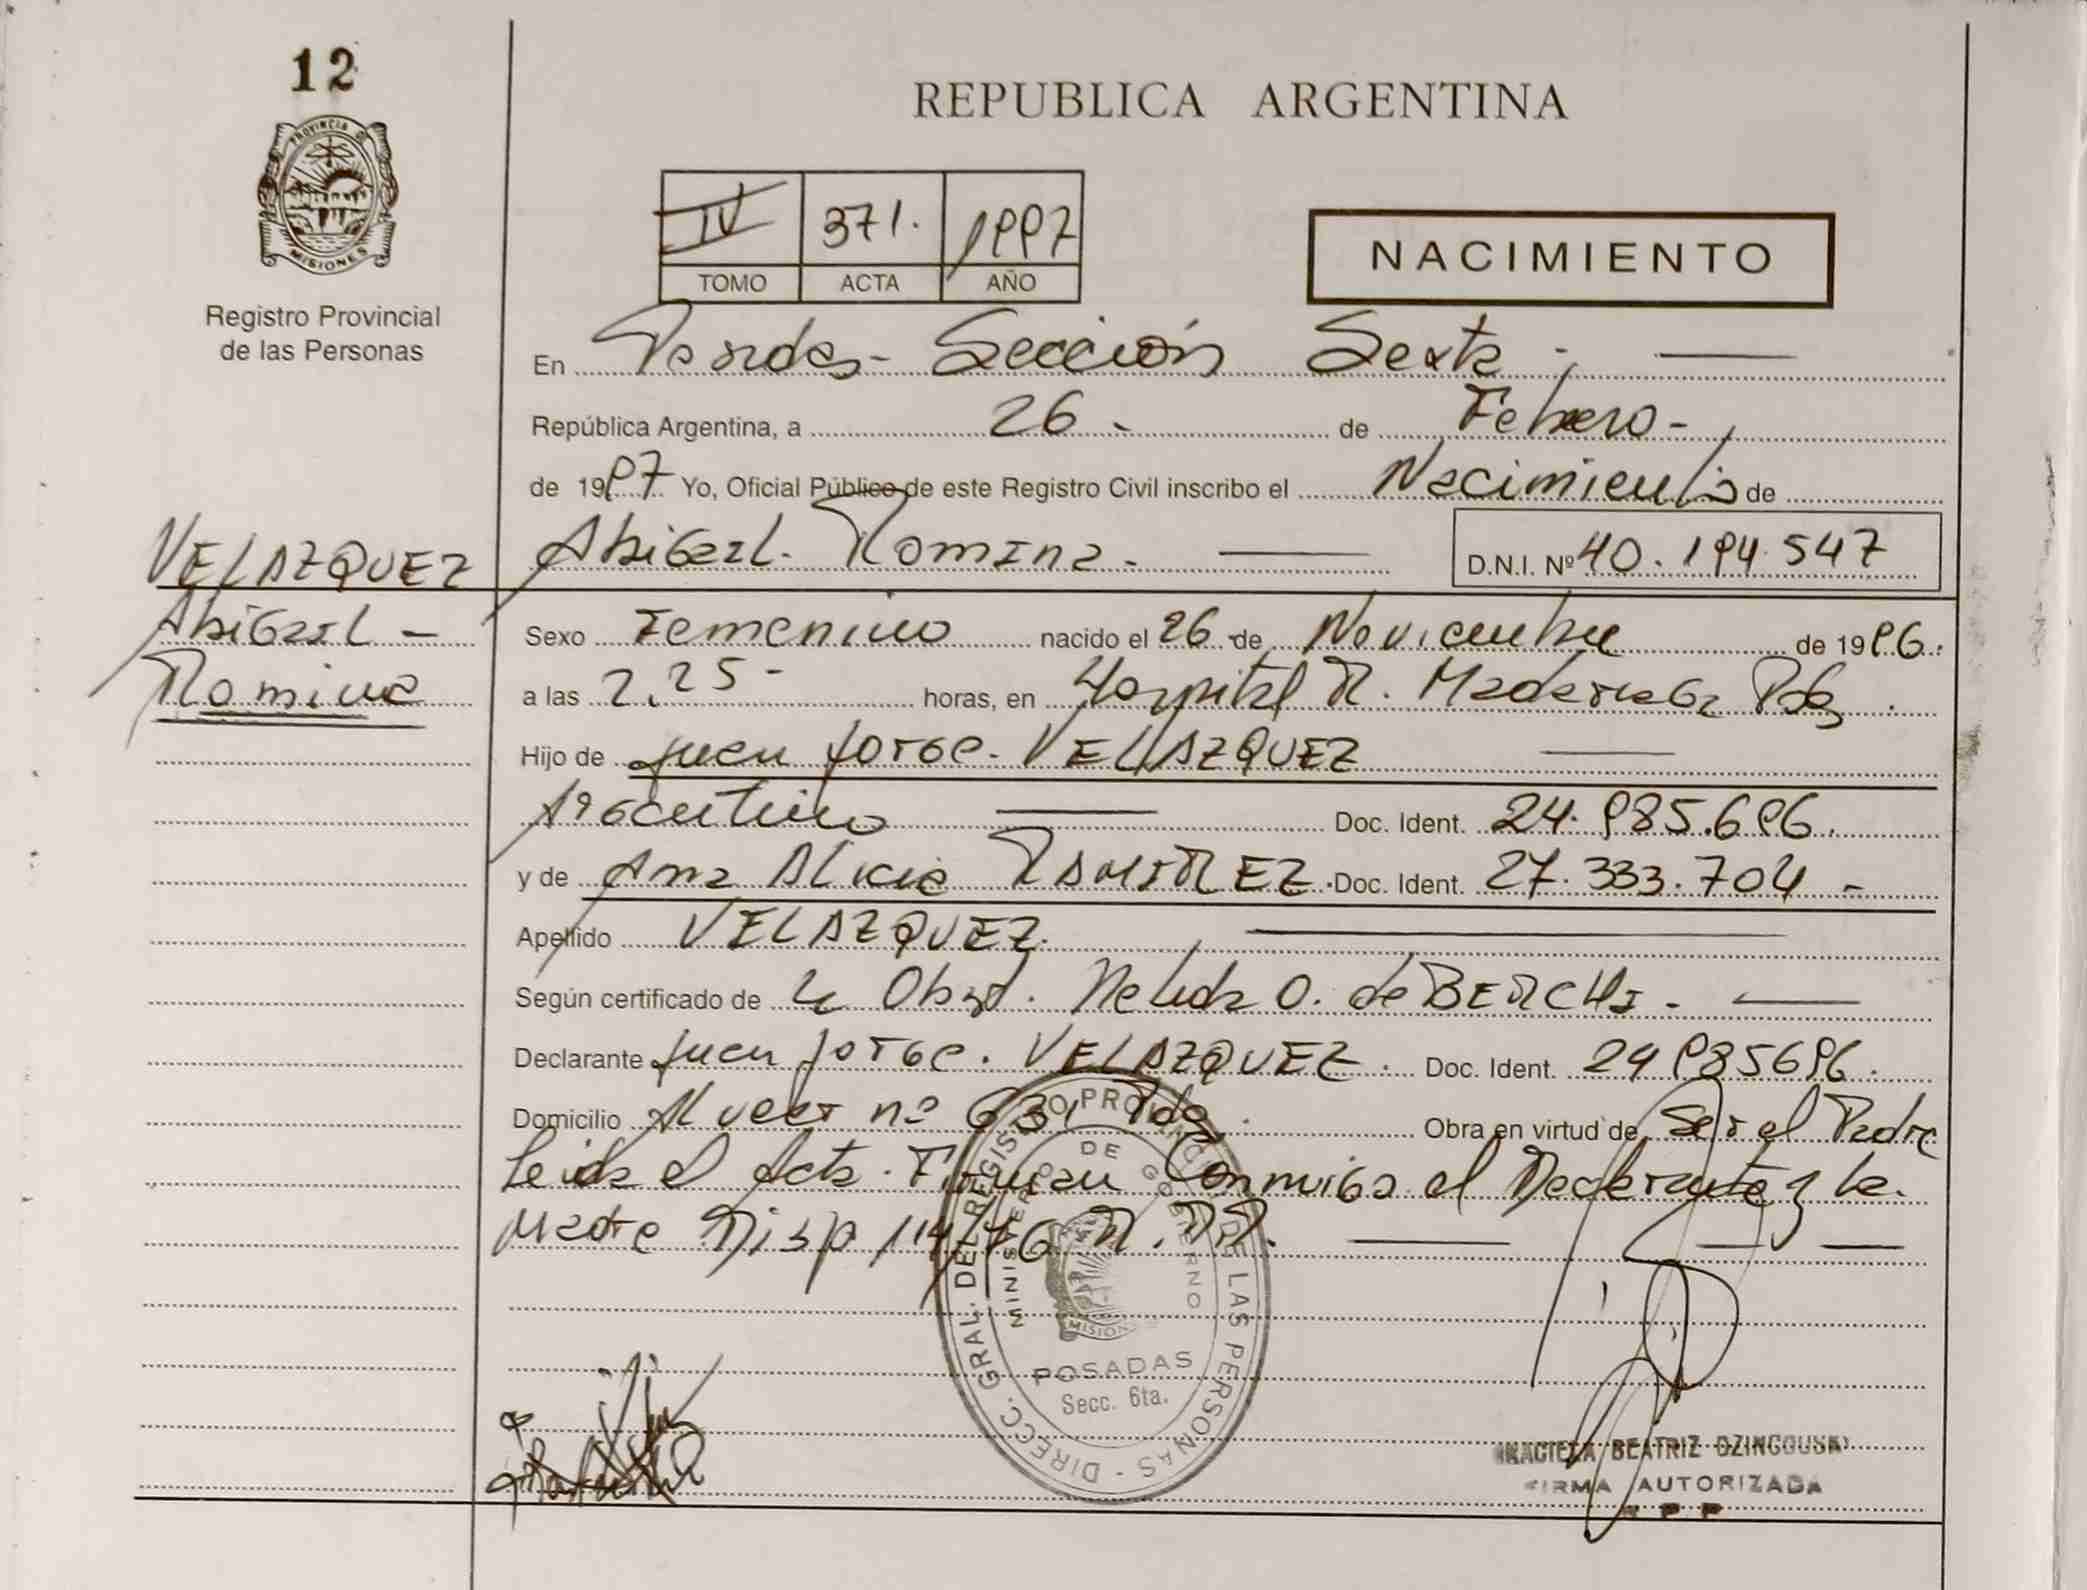 12
PROVINCIA DE
MISIONES
Registro Provincial
de las Personas
REPUBLICA ARGENTINA
IV 371. 1997
TOMO ACTA AÑO
NACIMIENTO
En Posadas - Sección Sexta -
República Argentina, a 26 - de Febrero -
de 1997 Yo, Oficial Público de este Registro Civil inscribo el Nacimiento de
Abigail Romina - D.N.I. Nº 40.194.547
VELAZQUEZ
Abigail -
Romina
Sexo Femenino nacido el 26 de Noviembre de 1996.
a las 2.25 - horas, en Hospital R. Madariaga Pdas
Hijo de Juan Jorge. VELAZQUEZ
Argentino Doc. Ident. 24.985.696.
y de Ana Alicia RAMIREZ. Doc. Ident. 27.333.704 -
Apellido VELAZQUEZ.
Según certificado de la Obst. Nelida O. de BERCHI -
Declarante Juan Jorge. VELAZQUEZ. Doc. Ident. 24985696.
Domicilio Alvear nº 631 Pdas. Obra en virtud de Ser el Padre
Leida el Acta. Firman Conmigo el Declarante y la
Madre Disp 114/76 R.P.P.
DIRECC. GRAL. DEL REGISTRO PROVINCIAL DE LAS PERSONAS -
MINISTERIO DE GOBIERNO
MISIONES
POSADAS
Secc. 6ta.
BEATRIZ
FIRMA AUTORIZADA